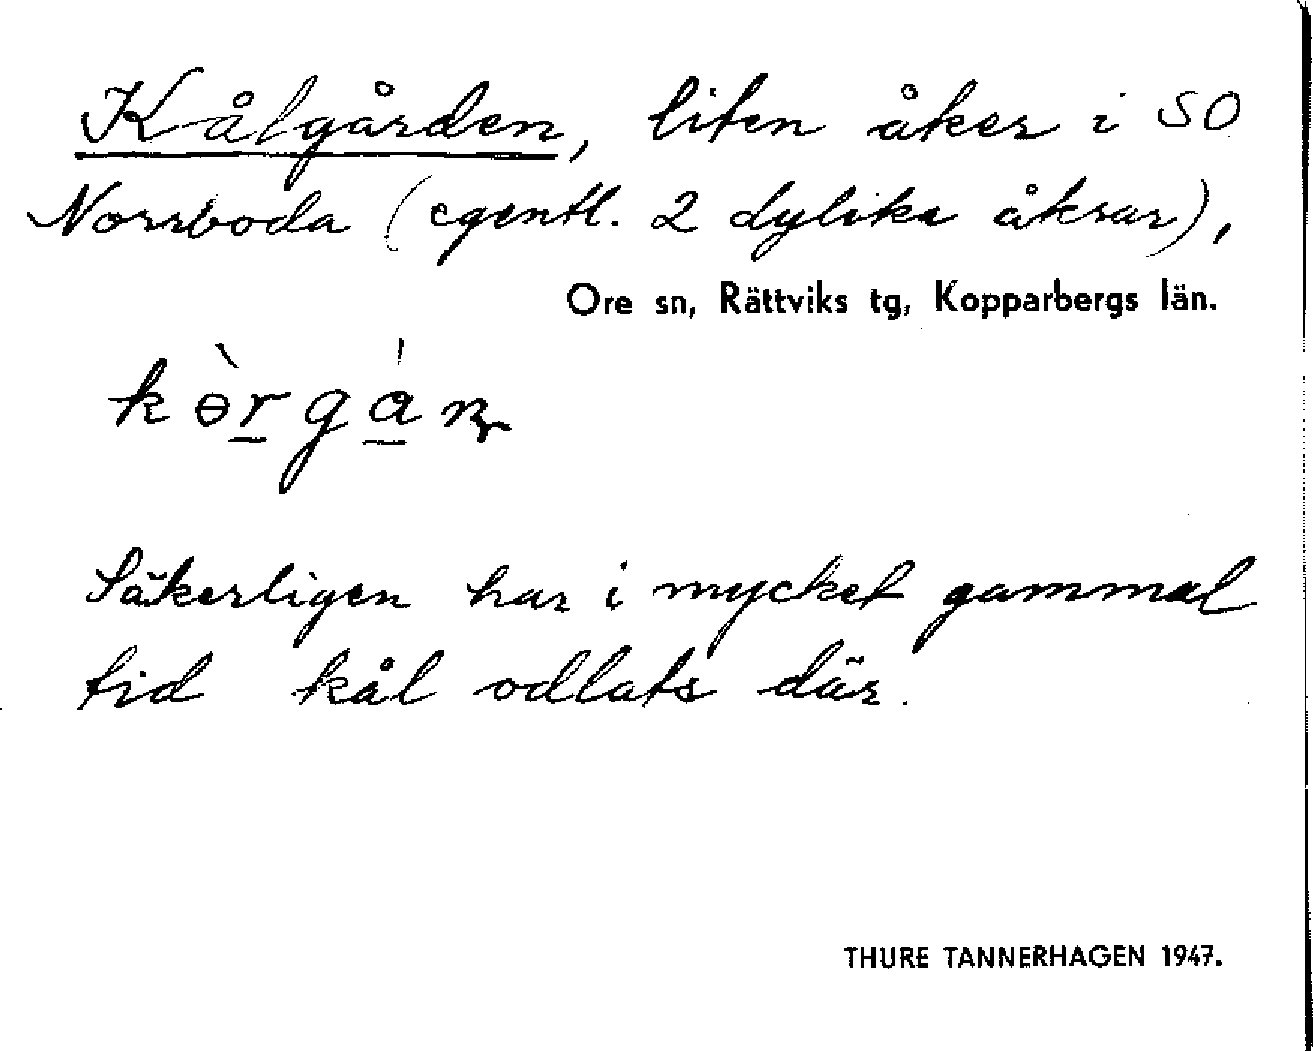 Kålgården, liten åker i SO
Norrboda (egentl. 2 dylika åkrar),
Ore sn, Rättviks tg, Kopparbergs län.
kɵ̀rgán
Säkerligen har i mycket gammal
tid kål odlats där.
THURE TANNERHAGEN 1947.